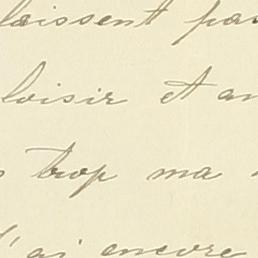 laissent pas
loisir et an
trop ma
j'ai encore